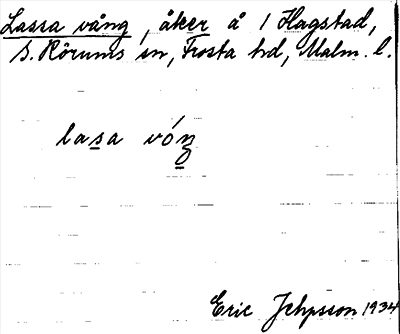 Lassa vång, åker å 1 Hagstad,
S. Rörums sn, Frosta hd, Malm. l.
lasa vóŋ
Eric Jehpsson 1934